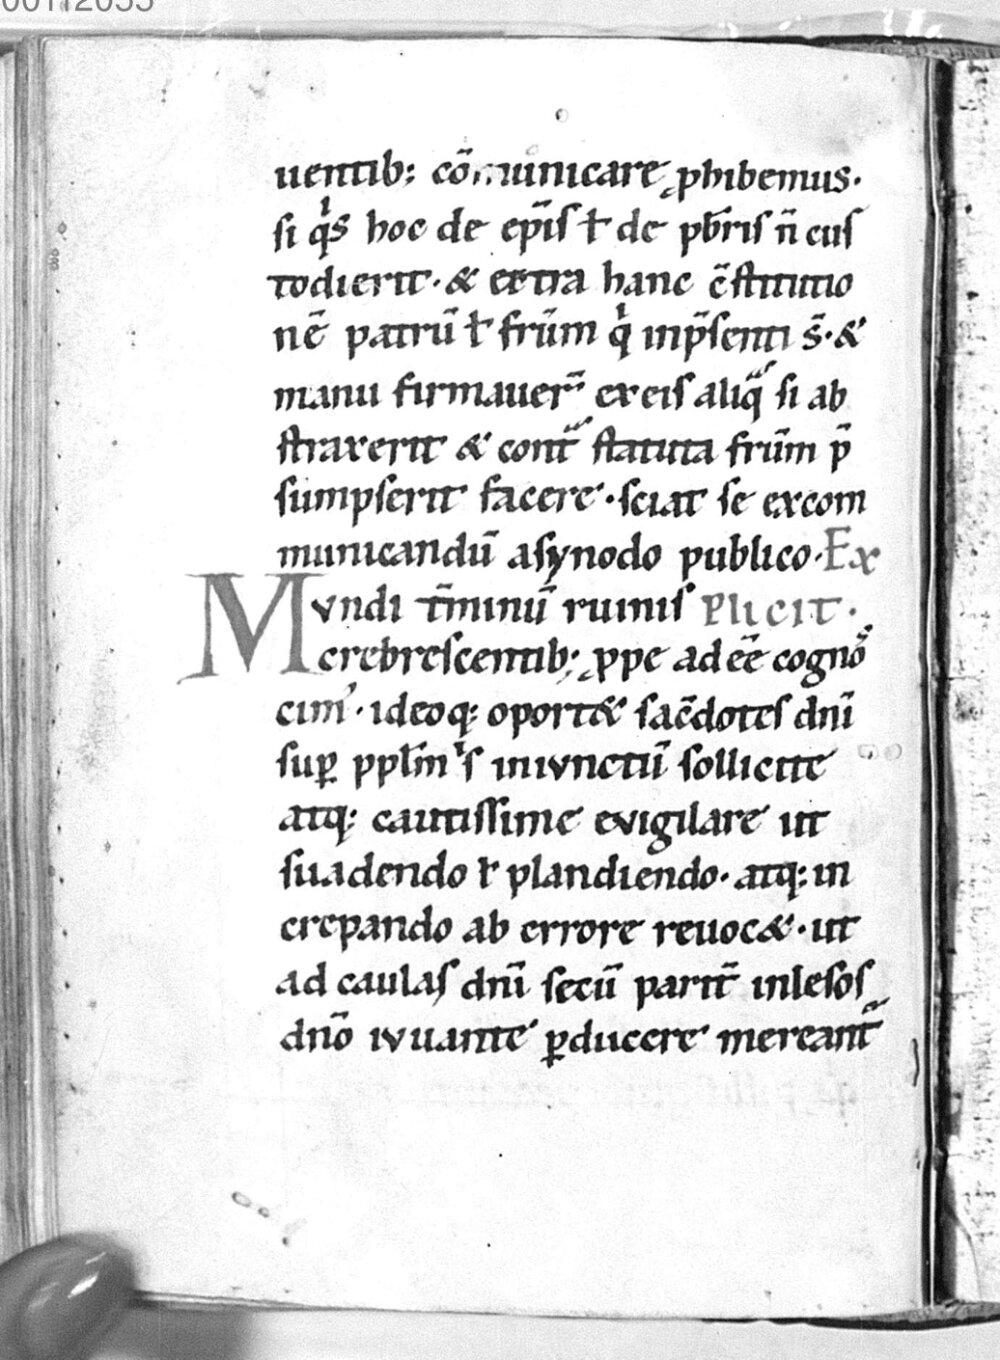 uentib; cōmunicare phibemus.
si qͥs hoc de ep̄is ł de pb̄ris n̄ cus
todierit. & extra hanc c̄stitutio
nē patrū ł frūm qͥ inp̄senti s̄. &
manu firmauer̄ ex eis aliq̄ si ab
straxerit & cont̄ statuta frūm p̄
sumpserit facere. sciat se excom
municandū asynodo publico. Ex
Mvndi t̄minū ruinis plicit.
crebrescentib; ꝓpe ad eē cogno
cim᾽. ideoq; oport& sac̄dotes dn̄i
suꝑ ppl̄m ͥs inivnctū sollicite
atq; cautissime evigilare ut
suadendo ł plandiendo. atq; in
crepando ab errore reuoc&. ut
ad caulas dn̄i secū parit̄ inlesos
dn̄o ivuante ꝑducere mereant̄